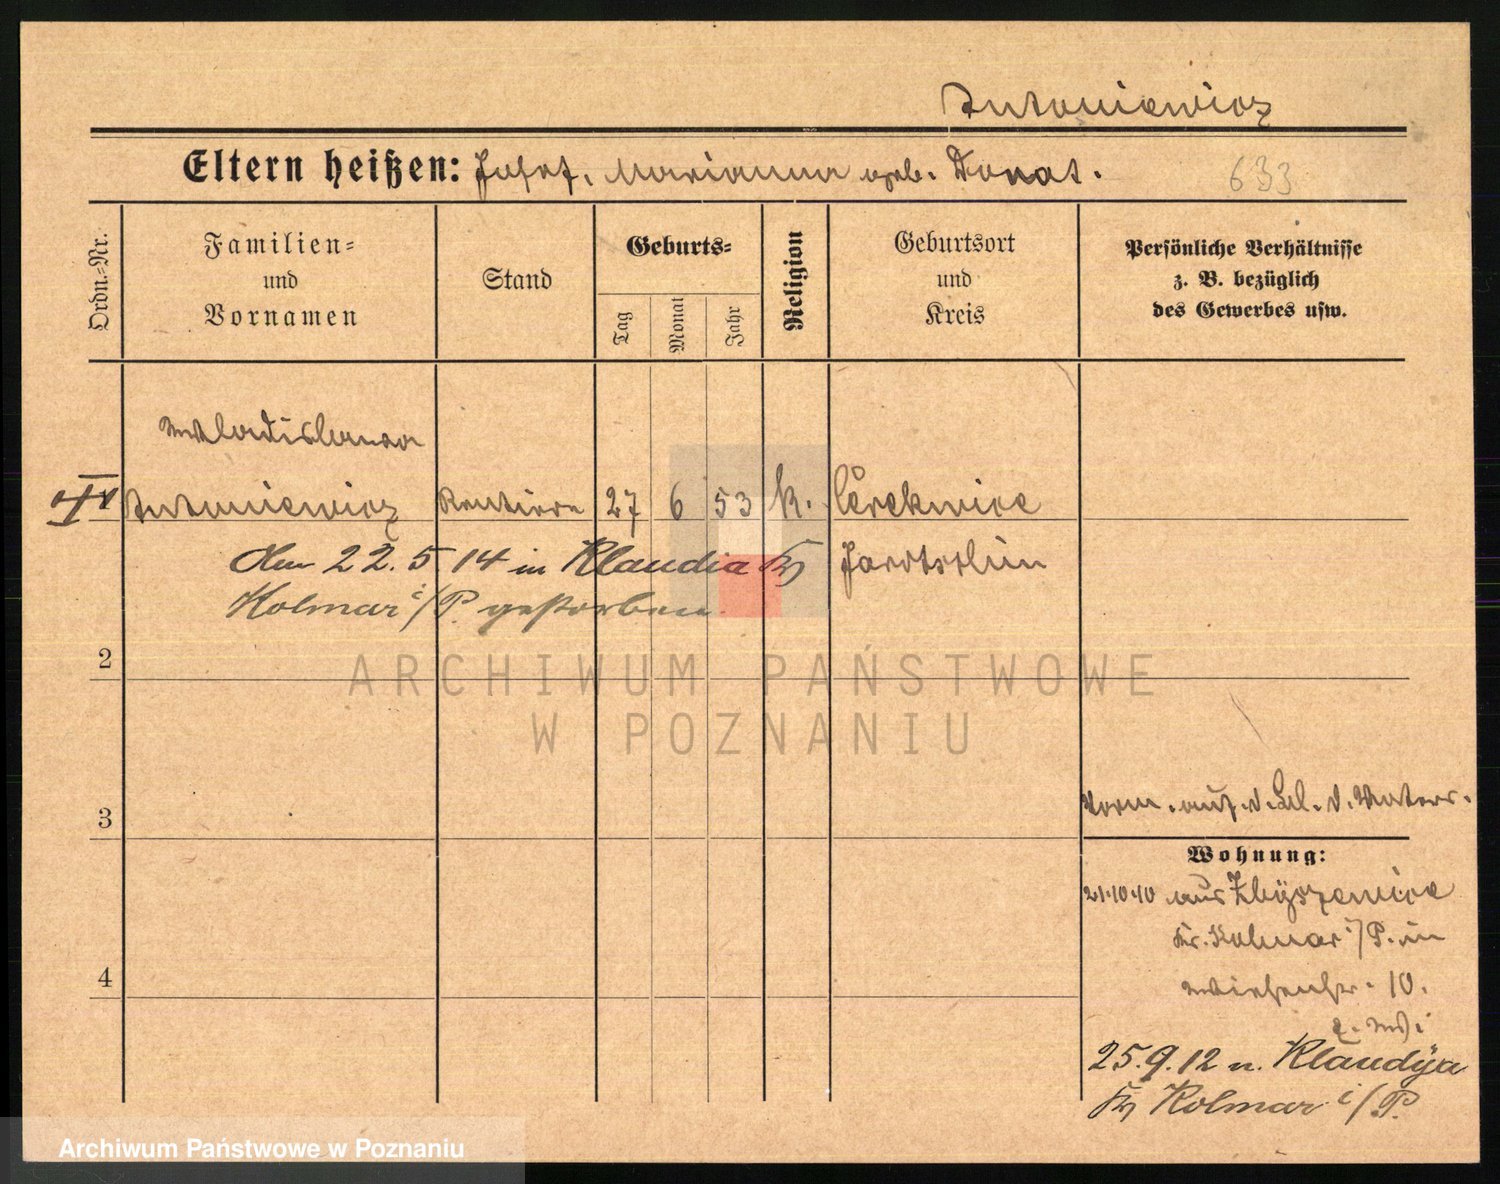 Antoniewicz
Eltern heißen: Josef, Marianna geb. Donat.
633
Ordn.-Nr.
Familien-
und
Vornamen
Stand
Geburts-
Tag
Monat
Jahr
Religion
Geburtsort
und
Kreis
Persönliche Verhältnisse
z. B. bezüglich
des Gewerbes usw.
Wladislawa
Antoniewicz Rentiere 27 6 53 k. Cerekwice
Jarotschin
Am 22.5.14 in Klaudia Kr
Kolmar i/P. gestorben.
ARCHIWUM PAŃSTWOWE
W POZNANIU
2
3
4
Vorm. auf d. Bl. d. Vaters.
Wohnung:
21.10.10 aus Zbyszewice
Kr. Kolmar i/P. in
Wiesenstr. 10.
z. W.
25.9.12 n. Klaudÿa
Kr Kolmar i/P.
Archiwum Państwowe w Poznaniu